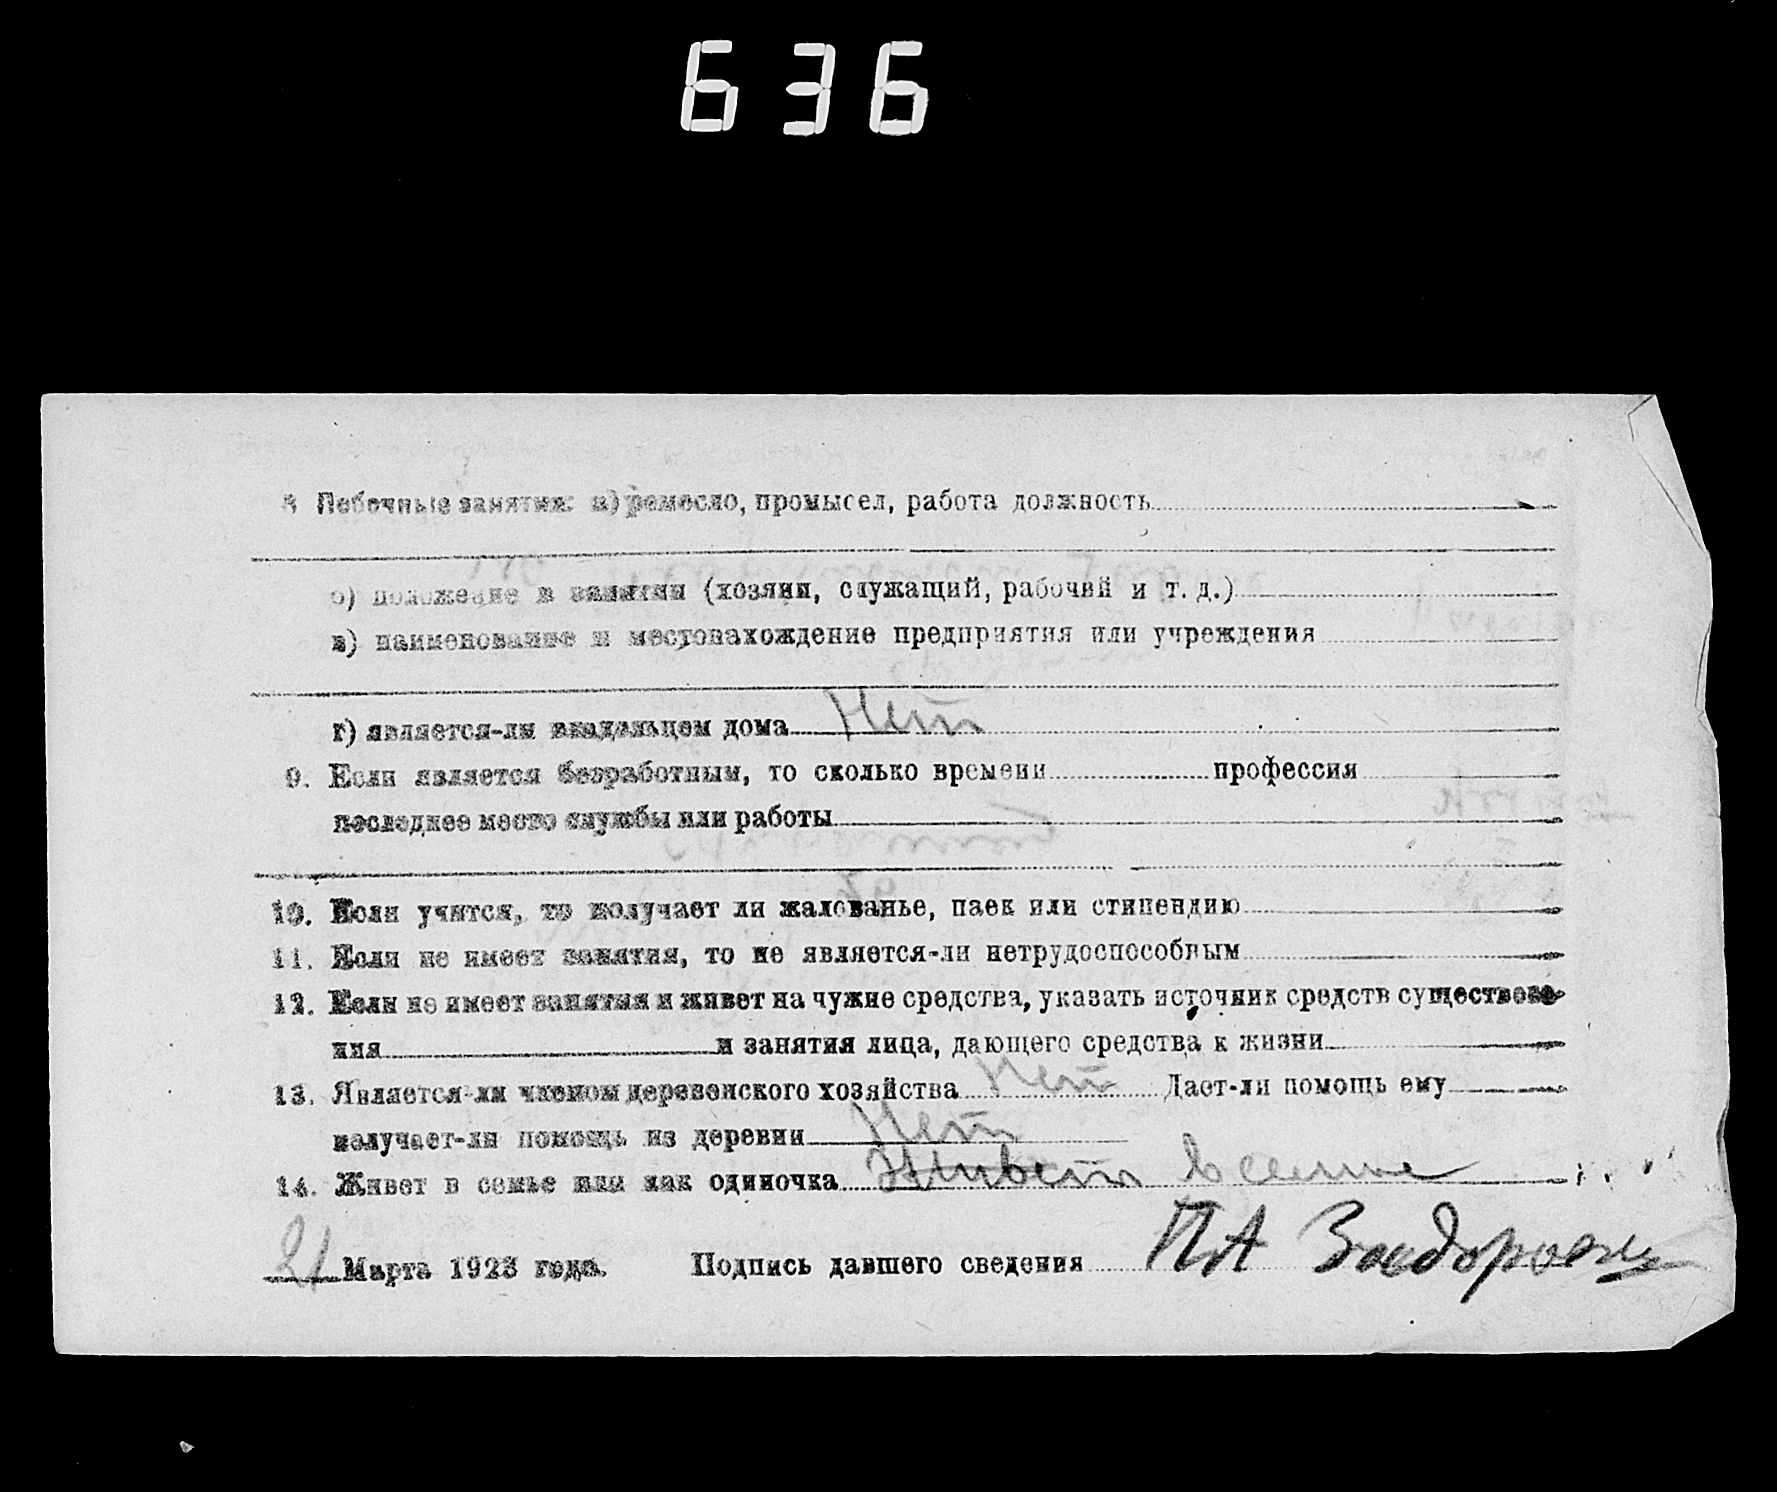 636
8 Побочные занятия: а) ремесло, промысел, работа должность
б) положение в занятии (хозяин, служащий, рабочий и т. д.)
в) наименование и местонахождение предприятия или учреждения
г) является-ли владельцем дома Нет
9. Если является безработным, то сколько времени профессия
последнее место службы или работы
10. Если учится, то получает ли жалованье, паек или стипендию
11. Если не имеет занятия, то не является-ли нетрудоспособным
12. Если не имеет занятия и живет на чужие средства, указать источник средств существова-
ния и занятия лица, дающего средства к жизни
13. Является-ли членом деревенского хозяйства Нет Дает-ли помощь ему
получает-ли помощь из деревни Нет
14. Живет в семье или как одиночка Живет в семье
21 Марта 1923 года. Подпись давшего сведения ПА